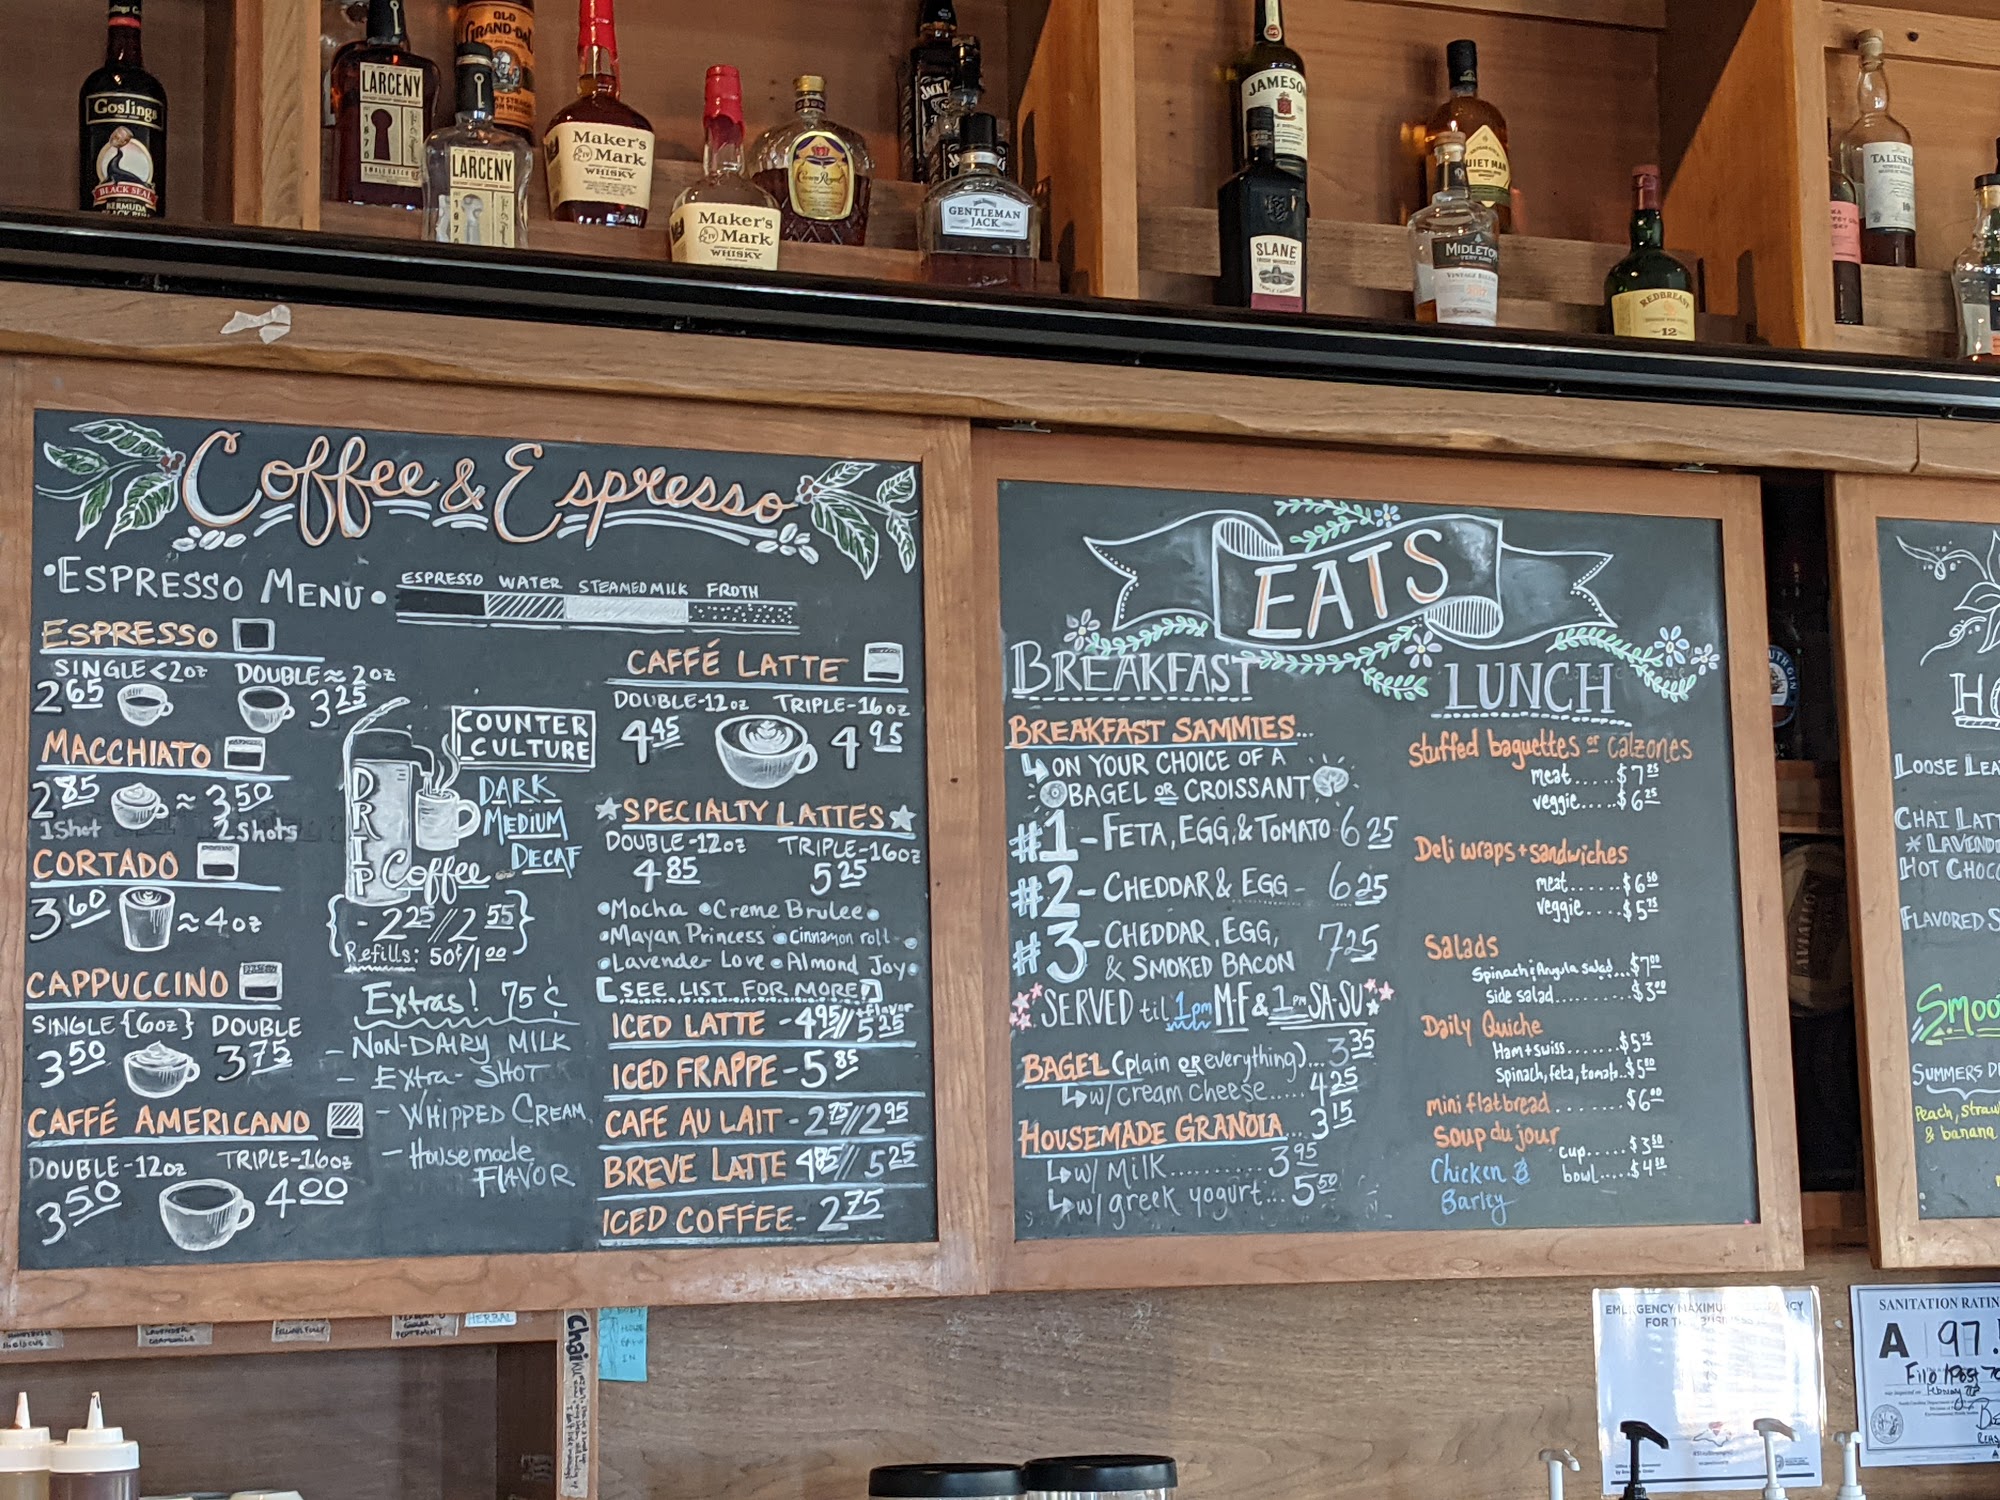 Goslings
BLACK SEAL
BERMUDA
BLACK RUM
LARCENY
1870
SMALL BATCH
LARCENY
1870
OLD
GRAND-DAD
Maker's
Mark
WHISKY
Maker's
Mark
WHISKY
Crown Royal
GENTLEMAN
JACK
JAMESON
SLANE
IRISH WHISKEY
QUIET MAN
MIDLETON
VERY RARE
REDBREAST
12
TALISKER
10
Coffee & Espresso
• ESPRESSO MENU •
ESPRESSO WATER STEAMED MILK FROTH
ESPRESSO
SINGLE < 2oz DOUBLE ≈ 2oz
2 65 3 25
MACCHIATO
2 85 ≈ 3 50
1 Shot 2 Shots
CORTADO
3 60 ≈ 4oz
CAPPUCCINO
SINGLE {6oz} DOUBLE
3 50 3 75
CAFFÉ AMERICANO
DOUBLE-12oz TRIPLE-16oz
3 50 4 00
COUNTER
CULTURE
DRIP
Coffee
DARK
MEDIUM
DECAF
{ - 2 25 // 2 55 }
Refills: 50¢/1 00
Extras! 75¢
- NON-DAIRY MILK
- EXTRA-SHOT
- WHIPPED CREAM
- Housemade
FLAVOR
CAFFÉ LATTE
DOUBLE-12oz TRIPLE-16oz
4 45 4 95
★ SPECIALTY LATTES ★
DOUBLE-12oz TRIPLE-16oz
4 85 5 25
• Mocha • Creme Brulee •
• Mayan Princess • Cinnamon roll •
• Lavender Love • Almond Joy •
[SEE LIST FOR MORE!]
+ flavor
ICED LATTE - 4 95 // 5 25
ICED FRAPPE - 5 85
CAFE AU LAIT - 2 75 // 2 95
BREVE LATTE 4 85 // 5 25
ICED COFFEE - 2 75
EATS
BREAKFAST
BREAKFAST SAMMIES...
ON YOUR CHOICE OF A
BAGEL OR CROISSANT
#1 - FETA, EGG, & TOMATO 6 25
#2 - CHEDDAR & EGG - 6 25
#3 - CHEDDAR, EGG,
& SMOKED BACON 7 25
SERVED til 1pm M-F & 1pm SA-SU
BAGEL (plain OR everything)... 3 35
w/ cream cheese..... 4 25
HOUSEMADE GRANOLA... 3 15
w/ MILK.......... 3 95
w/ greek yogurt... 5 50
LUNCH
stuffed baguettes or calzones
meat.....$7 25
veggie.....$6 25
Deli wraps + sandwiches
meat......$6 50
veggie.....$5 75
Salads
Spinach & Arugula Salad...$7 00
side salad.........$3 00
Daily Quiche
Ham + swiss.......$5 75
Spinach, feta, tomato..$5 50
mini flatbread........$6 00
Soup du jour
cup.....$3 50
bowl....$4 50
Chicken &
Barley
LOOSE LEA
CHAI LATT
* LAVENDE
HOT CHOCO
FLAVORED S
SMOO
SUMMERS D
Peach, straw
& banana
HERBAL
Chai
EMERGENCY MAXIMUM OCCUPANCY
FOR THIS BUSINESS
SANITATION RATIN
A 97.